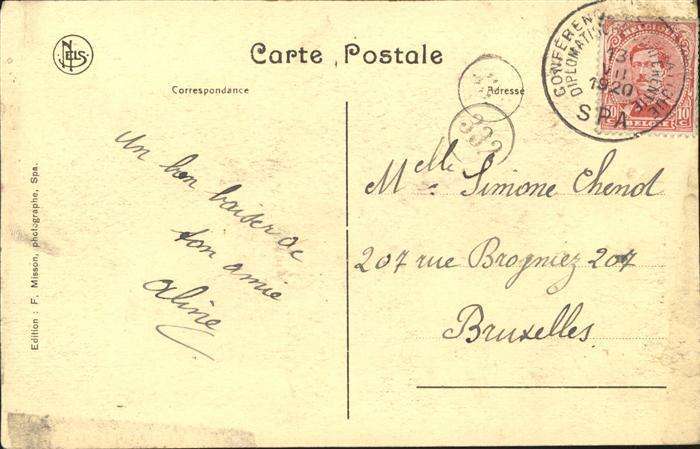 NELS
Carte Postale
Correspondance
Adresse
CONFÉRENCE
DIPLOMATIQUE
13
VII
1920
SPA
BELGIQUE
10 C 10 C
BELGIË
332
Un bon baiser de
ton amie
Aline
Melle Simone Chenot
207 rue Brogniez 207
Bruxelles
Edition : F. Misson, photographe, Spa.